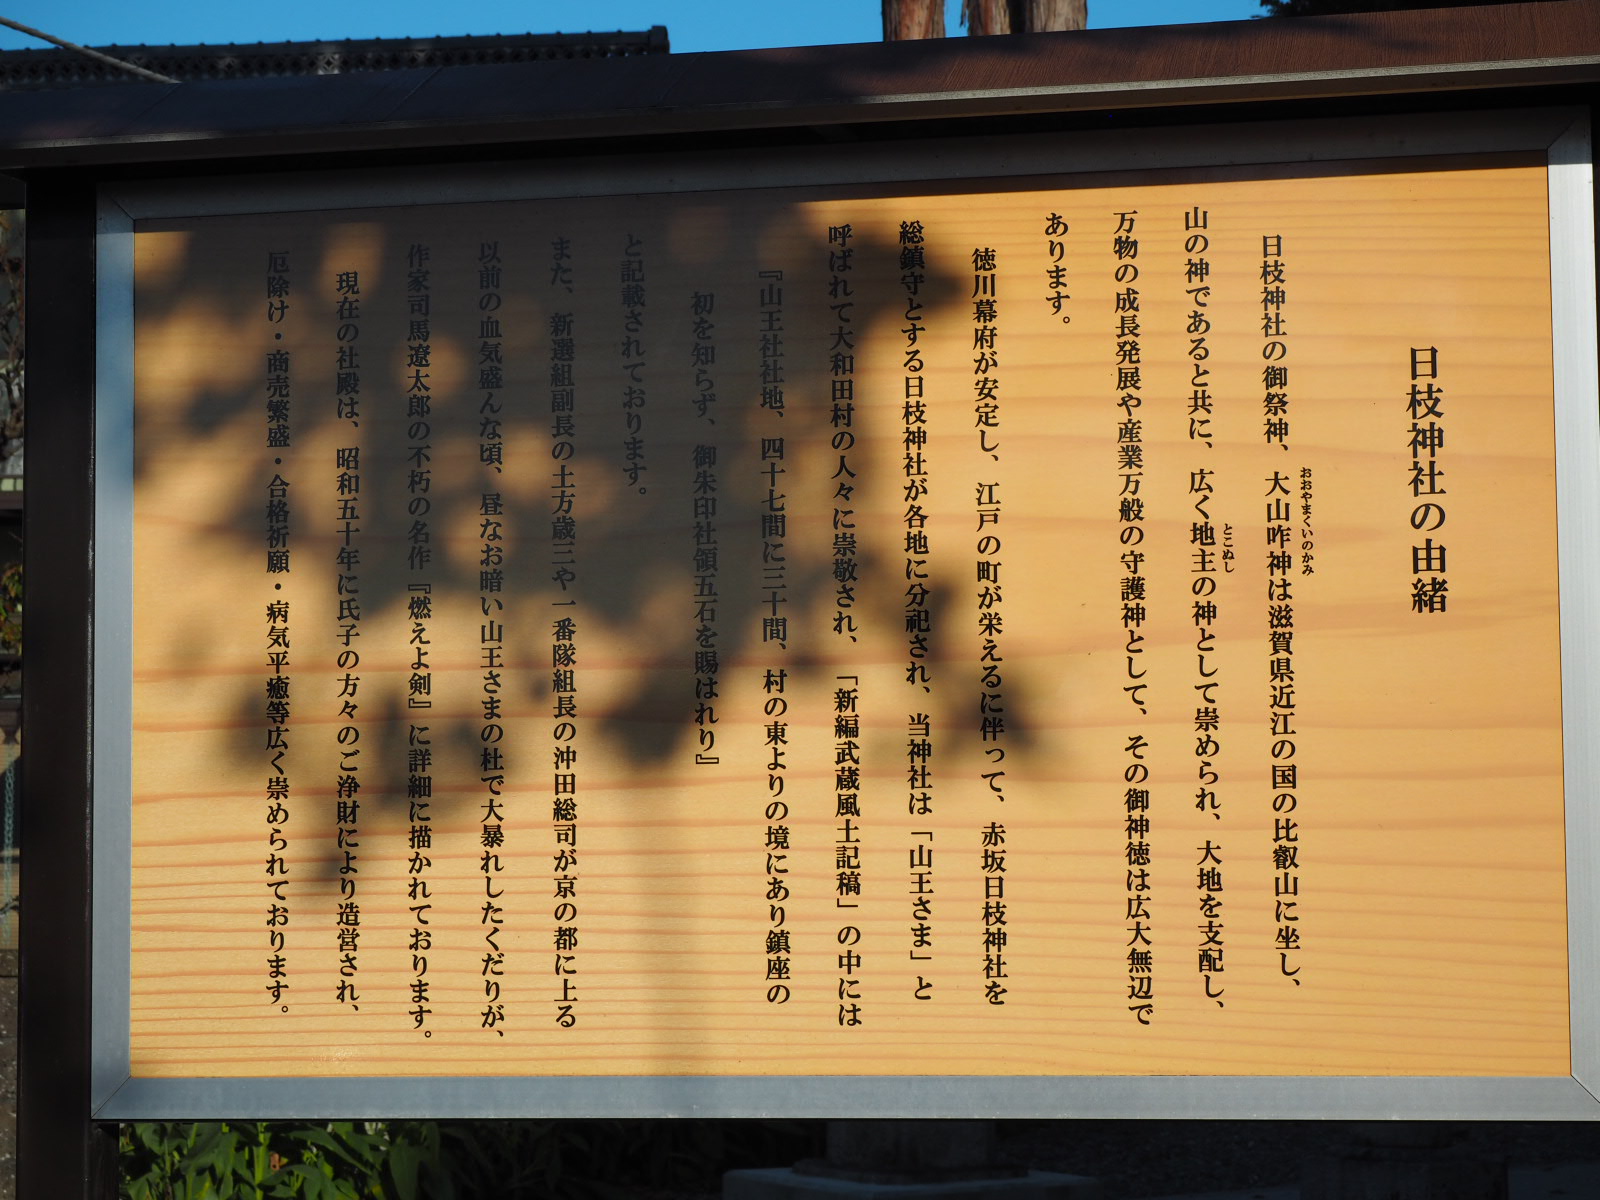 日枝神社の由緒
日枝神社の御祭神、大山咋神は滋賀県近江の国の比叡山に坐し、
おおやまくいのかみ
山の神であると共に、広く地主の神として崇められ、大地を支配し、
とこぬし
万物の成長発展や産業万般の守護神として、その御神徳は広大無辺で
あります。
徳川幕府が安定し、江戸の町が栄えるに伴って、赤坂日枝神社を
総鎮守とする日枝神社が各地に分祀され、当神社は「山王さま」と
呼ばれて大和田村の人々に崇敬され、「新編武蔵風土記稿」の中には
『山王社社地、四十七間に三十間、村の東よりの境にあり鎮座の
初を知らず、御朱印社領五石を賜はれり』
と記載されております。
また、新選組副長の土方歳三や一番隊組長の沖田総司が京の都に上る
以前の血気盛んな頃、昼なお暗い山王さまの杜で大暴れしたくだりが、
作家司馬遼太郎の不朽の名作『燃えよ剣』に詳細に描かれております。
現在の社殿は、昭和五十年に氏子の方々のご浄財により造営され、
厄除け・商売繁盛・合格祈願・病気平癒等広く崇められております。